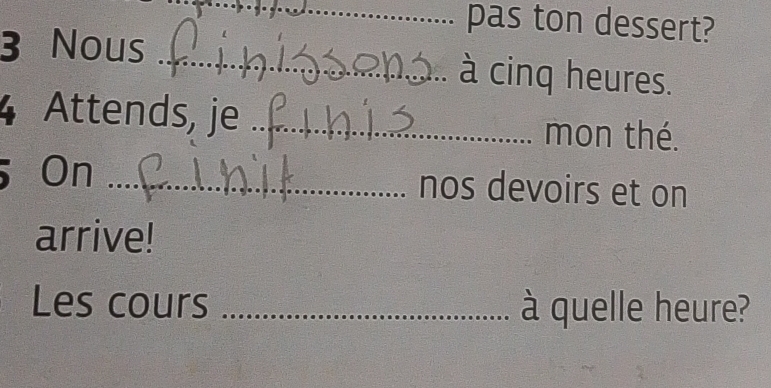 pas ton dessert?
3 Nous finissons à cinq heures.
4 Attends, je finis mon thé.
5 On finit nos devoirs et on
arrive!
Les cours .................... à quelle heure?